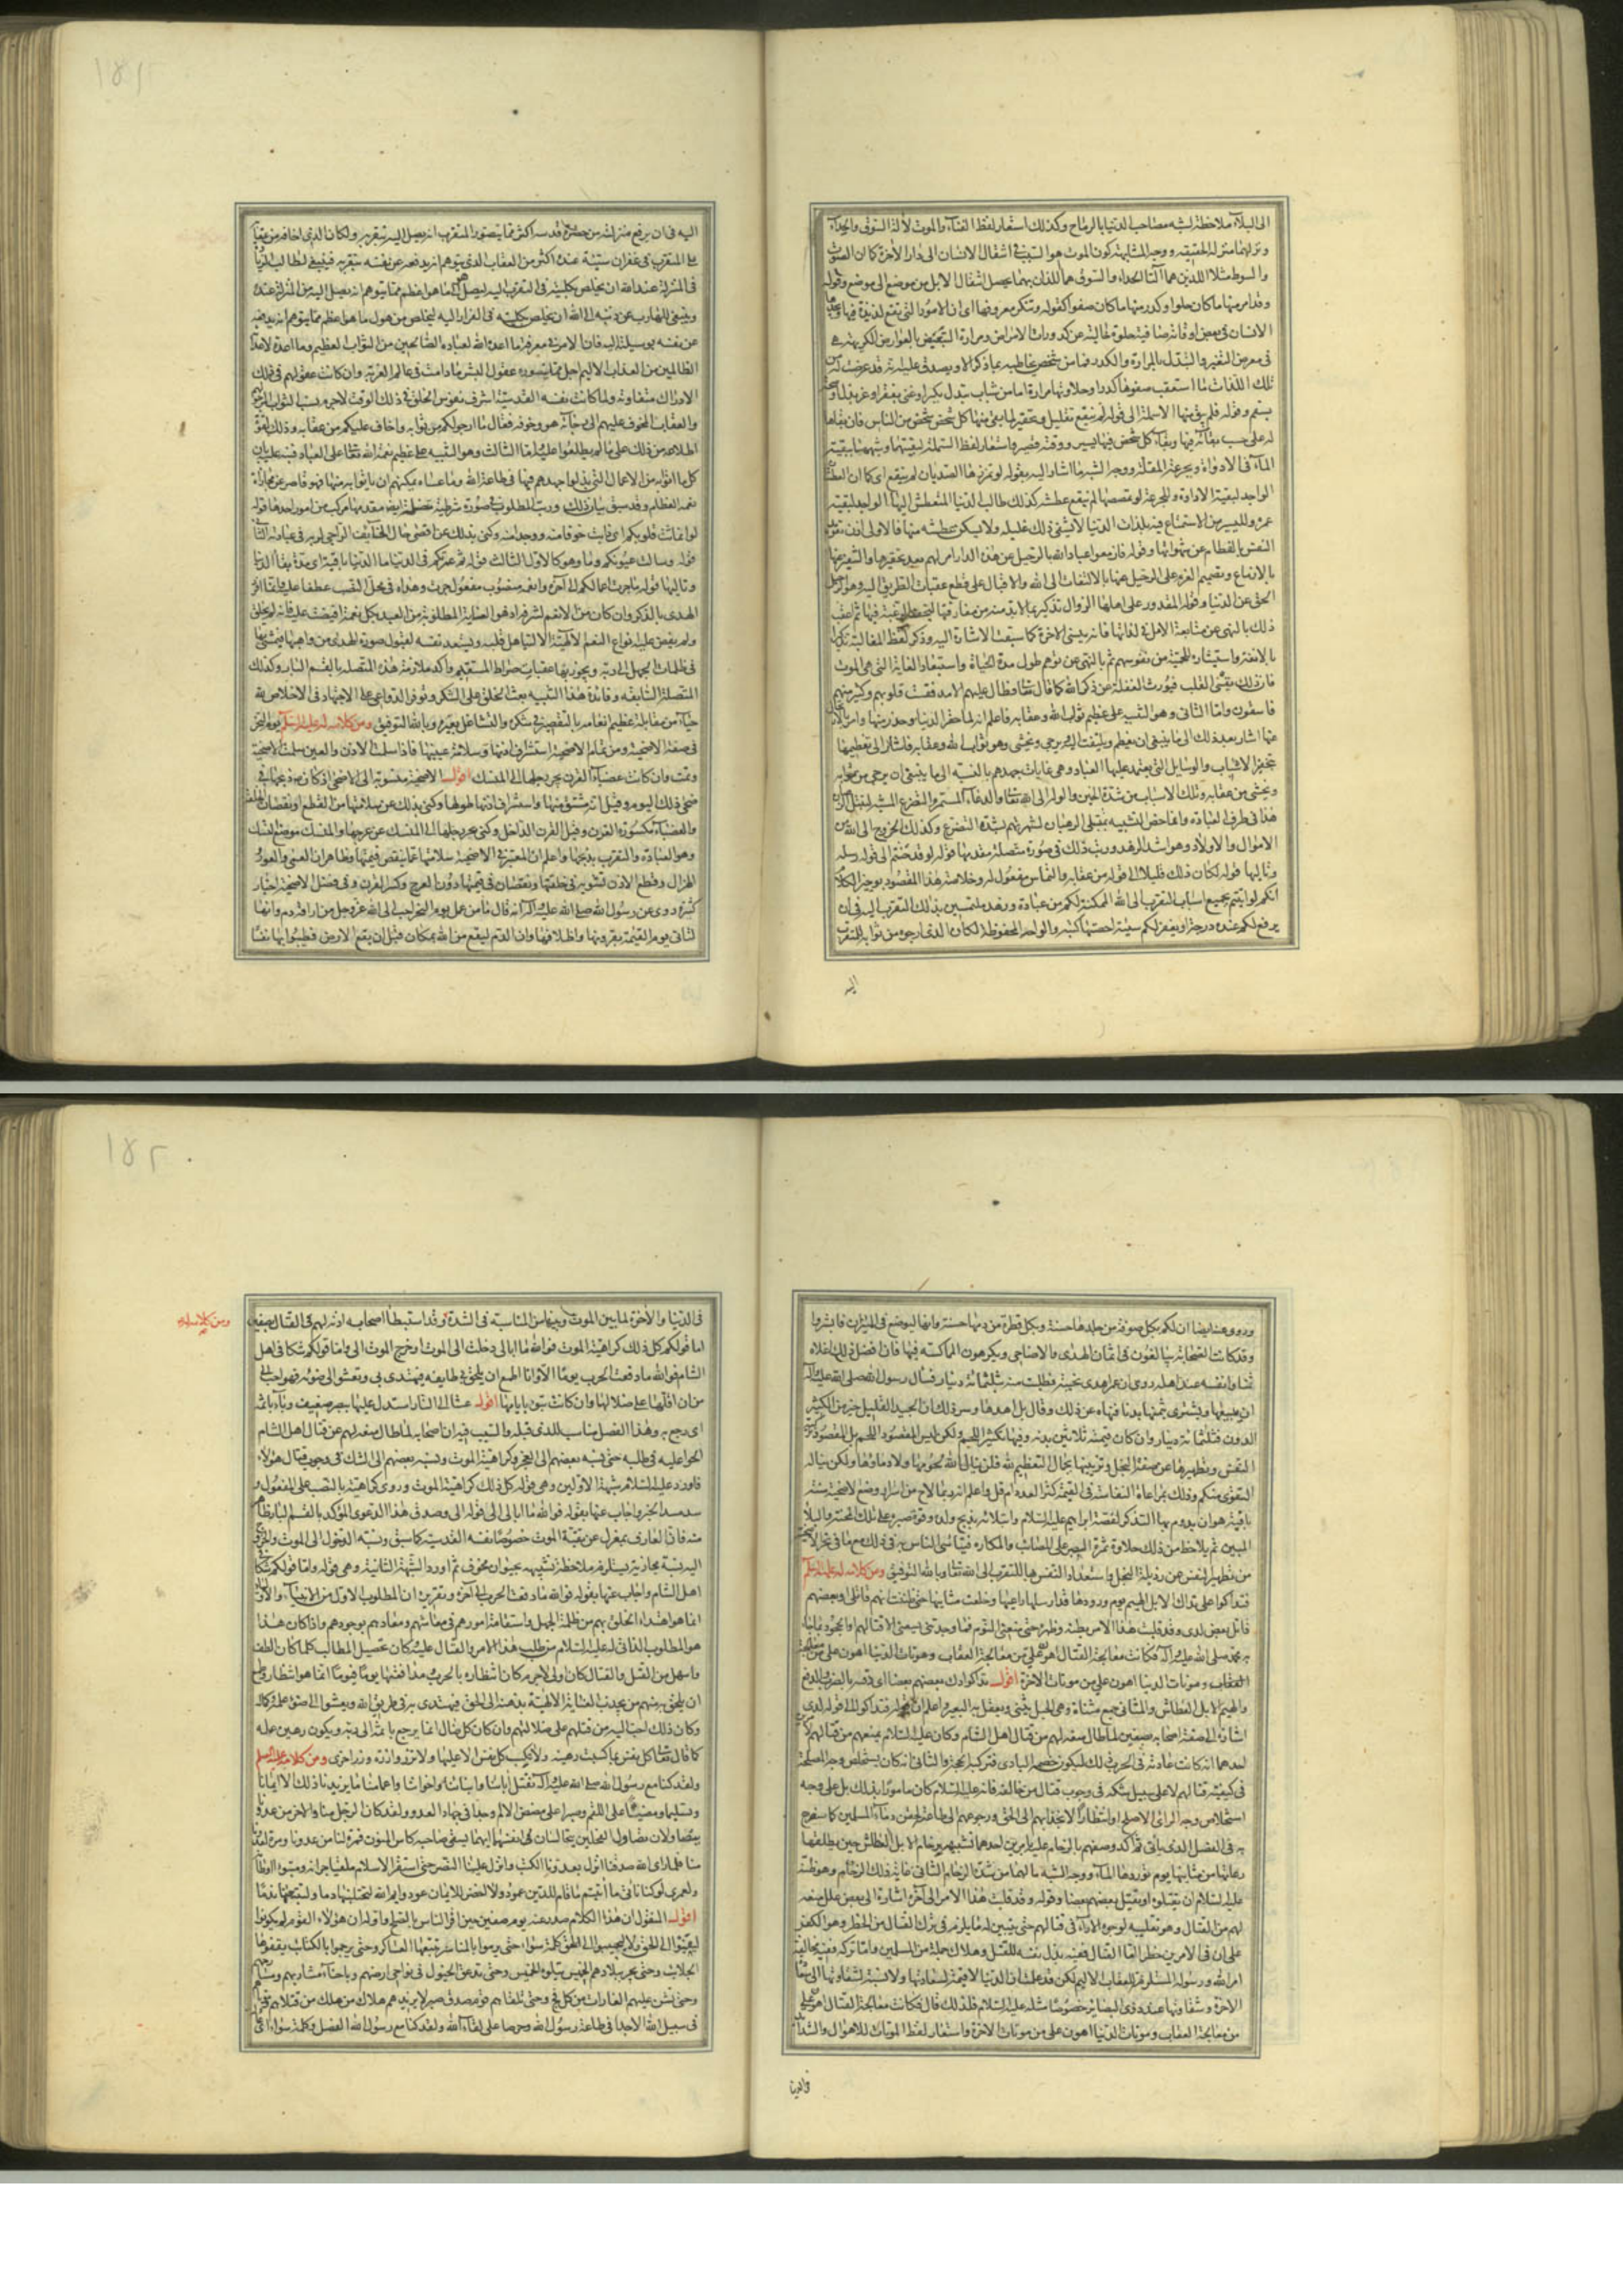 ١٥١
الى البلاء ملاحظة لشبه مصاحب الدنيا بالرماح وكذلك استعار لفظ الفناء والموت لآلة السوق والحداء
ونزلهما منزلة الحقيقة ووجه المشابهة كون الموت هو السبب في انتقال الانسان الى دار الآخرة كما ان الصوت
والسوط مثلا اللذين هما آلتا الحداء والسوق هما اللذان بهما يحصل انتقال الابل من موضع الى موضع وقوله
وقد امر منها ما كان حلوا وكدر منها ما كان صفوا كقوله وتنكر معروفها اى ان الامور التي تقع لذيذة فيها
الانسان في بعض اوقاته صافية حلوة خالية عن كدورات الامراض ومرارة
في معرض التغير والتبدل بالمرارة والكدر فما من شخص يخاطبه بما ذكر الا ويصدق عليه انه قد عرضت له
تلك اللذات ما استعقب صفوها كدرا وحلاوتها مرارة اما من شباب يتبدل بكبر او غنى بفقر او عز بذل او صحة
بسقم وقوله فلم يبق منها الا سملة الى قوله لم ينقع تقليل وتحقير لما بقى منها لكل شخص شخص من الناس فان بقاها
له على حسب بقائه فيها وبقاء كل شخص فيها يسير ووقته قصير واستعار لفظ السملة لبقيتها وشبهها ببقية
الماء في الاداوة وبجرعة المقلة ووجه الشبه ما اشار اليه بقوله لو تمززها الصديان لم ينقع اى كما ان العطشان
الواجد لبقية الاداوة والجرعة لو تمصصها لم ينقع عطشه كذلك طالب الدنيا المتعطش اليها الواجد لبقية
عمره واليسير من الاستمتاع فيه بلذات الدنيا لا يشفى ذلك غليله ولا يسكن عطشه منها فالاولى اذن
النفس بالفطام عن شهواتها وقوله فازمعوا عباد الله بالرحيل عن هذه الدار امر لهم بعد تحقيرها والتنفير عنها
بالازماع وتصميم العزم على الرحيل عنها بالالتفات الى الله والاقبال على قطع عقبات الطريق اليه وهو الرحيل
الحق عن الدنيا وقوله المقدور على اهلها الزوال تذكير بما لا بد منه من مفارقتها
ذلك بالنهى عن متابعة الامل في لذاتها فانه ينسى الآخرة كما سبقت الاشارة اليه وذكر لفظ المغالبة
بالانفة واستشارة للحمية من نفوسهم ثم بالنهى عن توهم طول مدة الحياة واستبعاد الغاية التي هى الموت
فان ذلك يقسى القلب فيورث الغفلة عن ذكر الله كما قال تعالى فطال عليهم الامد فقست قلوبهم وكثير منهم
فاسقون واما الثانى وهو التنبيه على عظيم ثواب الله وعقابه فاعلم انه لما حقر الدنيا وحذر منها وامر بالارتحال
عنها اشار بعد ذلك الى ما ينبغى ان يعظم ويلتفت اليه ويرجى ويخشى وهو ثواب الله وعقابه فاشار الى تعظيمها
بتحقير الاسباب والوسايل التي يعتمد عليها العباد وهى غايات جهدهم بالنسبة الى ما ينبغى ان يرجى من ثوابه
ويخشى من عقابه وتلك الاسباب من شدة الحنين والوله الى الله تعالى والدعاء المستمر والتضرع
هذا في طرف العبادة وانما خص التشبيه بمتبتلى الرهبان لشهرتهم بشدة التضرع وكذلك الخروج الى الله من
الاموال والاولاد وهو اشد الزهد ورتب ذلك في صورة متصلة مقدمها قوله لو حننتم الى قوله رسله
وتاليها قوله لكان ذلك قليلا الى قوله من عقابه والتماس مفعول له وخلاصة هذا المقصود بوجيز الكلام
انكم لو اتيتم بجميع اسباب التقرب الى الله الممكنة لكم من عبادة وزهد ملتمسين بذلك التقرب اليه في ان
يرفع لكم عنده درجة او يغفر لكم سيئة احصتها كتبه والواحه المحفوظة لكان الذى ارجو من ثوابه للمتقرب
اليه
اليه في ان يرفع منزلته من حضرة قدسه اكثر مما يتصور المتقرب انه يصل اليه بتقربه ولكان الذى اخافه من عقابه
على المتقرب في غفران سيئة عنده اكثر من العقاب الذى يتوهم انه يدفعه عن نفسه بتقربه فينبغى لطالب الزيادة
في المنزلة عند الله ان يخلص بكليته في التقرب اليه ليصل الى ما هو اعظم مما يتوهم انه يصل اليه من المنزلة عنده
وينبغى للهارب من ذنبه الى الله ان يخلص بكليته في الفرار اليه ليخلص من هول ما هو اعظم مما يتوهم انه يدفعه
عن نفسه بوسيلته اليه فان الامر في معرفة ما اعده الله لعباده الصالحين من الثواب العظيم وما اعده لاعدائه
الظالمين من العذاب الاليم اجل مما يتصوره عقول البشر ما دامت في عالم الغربة وان كانت عقولهم في ذلك
الادراك متفاوتة ولما كانت نفسه القدسية اشرف نفوس الخلق في ذلك الوقت لاجرم نسب الثواب المرجو
والعقاب المخوف عليهم الى رجائه هو وخوفه فقال ما ارجو لكم من ثوابه واخاف عليكم من عقابه وذلك لقوة
اطلاعه من ذلك على ما لم يطلعوا عليه واما الثالث وهو التنبيه على عظيم نعمة الله تعالى على العباد فنبه عليه بان
كل ما اتوا به من الاعمال التي بذلوا جهدهم فيها في طاعة الله وما عساه يمكنهم ان ياتوا به منها فهو قاصر عن مجازاة
نعمه العظام وقد سبق بيان ذلك ورتب المطلوب في صورة شرطية متصلة ايضا مقدمها مركب من امور احدها قوله
لو انماثت قلوبكم اى ذابت خوفا منه ووجدا منه وكنى بذلك عن اقصى حال الخائف الراجى لربه في عبادته الثانى
قوله وسالت عيونكم وما وهو كالاول الثالث قوله ثم عمرتم في الدنيا ما الدنيا باقية اى مدة بقاء الدنيا
وتاليها قوله ما جزت اعمالكم الى آخره وانعمه منصوب مفعول جزت وهداه في محل النصب عطفا عليه وانما افرد
الهدى بالذكر وان كان من الانعم لشرفه اذ هو الغاية المطلوبة من العبد بكل نعمة افيضت عليه فانه لم يخلق
ولم يفض عليه انواع النعم الالهية الا لتاهل قلبه ويستعد نفسه لقبول صورة الهدى من واهبها فيمشى بها
في ظلمات الجهل الى ربه ويجوز بها عقبات صراط المستقيم واكد ملازمة هذه المتصلة بالقسم البار وكذلك
المتصلة السابقة وفائدة هذا التنبيه بعث الخلق على الشكر وتوفر الدواعى على الاجتهاد في الاخلاص لله
حياء من مقابلة عظيم انعامه بالتقصير في شكره والتشاغل بغيره وبالله التوفيق ومن كلام له عليه السلم في يوم النحر
في صفة الاضحية ومن تمام الاضحية استشراف اذنها وسلامة عينها فاذا سلمت الاذن والعين سلمت الاضحية
وتمت وان كانت عضباء القرن تجر رجلها الى المنسك اقول الاضحية منسوبة الى الاضحى اذ كان ذبحها في
ضحى ذلك اليوم وقيل انه مشتق منها واستشراف اذنها طولها وكنى بذلك عن سلامتها من القطع او نقصان الخلقة
والعضباء مكسورة القرن وقيل القرن الداخل وكنى بجر رجلها الى المنسك عن عرجها والمنسك موضع النسك
وهو العبادة والتقرب بذبحها واعلم ان المعتبر في الاضحية سلامتها عما ينقص قيمتها وظاهر ان العمى والعور
والهزال وقطع الاذن تشويه في خلقتها ونقصان في قيمتها دون العرج وكسر القرن وفى فضل الاضحية اخبار
كثيرة روى عن رسول الله صلى الله عليه وآله انه قال ما من عمل يوم النحر احب الى الله عز وجل من اراقة دم وانها
لتاتى يوم القيمة بقرونها واظلافها وان الدم ليقع من الله بمكان قبل ان يقع الارض فطيبوا بها نفسا
١٥٢
وروى عنه ايضا ان لكم بكل صوفة من جلدها حسنة وبكل قطرة من دمها حسنة وانها لتوضع في الميزان فابشروا
وقد كانت الصحابة يبالغون في اثمان الهدى والاضاحى ويكرهون المماكسة فيها فان افضل ذلك اغلاه
ثمنا وانفسه عند اهله روى ان عمر اهدى نجيبة فطلبت منه بثلثمائة دينار فسال رسول الله صلى الله عليه وآله
ان يبيعها ويشترى بثمنها بدنا فنهاه عن ذلك وقال بل اهدها وسر ذلك ان الجيد القليل خير من الكثير
الدون فثلثمائة دينار وان كان قيمة ثلاثين بدنة وفيها تكثير اللحم ولكن ليس المقصود اللحم بل المقصود
النفس وتطهيرها عن صفة البخل وتزيينها بجمال التعظيم لله فلن ينال الله لحومها ولا دماؤها ولكن يناله
التقوى منكم وذلك بمراعاة النفاسة في القيمة كثر العدد ام قل واعلم انه ربما لاح من اسرار وضع الاضحية سنة
باقية هو ان يدوم بها التذكر لقصة ابراهيم عليه السلام وابتلائه بذبح ولده وقوة صبره على تلك المحنة والبلاء
المبين ثم يلاحظ من ذلك حلاوة ثمرة الصبر على المصائب والمكاره فيتاسى الناس به في ذلك مع ما في نحر الاضحية
من تطهير النفس عن رذيلة البخل واستعداد النفس بها للتقرب الى الله تعالى وبالله التوفيق ومن كلام له عليه السلم
فتداكوا على تداك الابل الهيم يوم ورودها قد ارسلها راعيها وخلعت مثانيها حتى ظننت انهم قاتلى او بعضهم
قاتل بعض لدى وقد قلبت هذا الامر بطنه وظهره حتى منعنى النوم فما وجدتنى يسعنى الا قتالهم او الجحود بما جاء
به محمد صلى الله عليه وآله فكانت معالجة القتال اهون على من معالجة العقاب وموتات الدنيا اهون على من
العقاب وموتات الدنيا اهون على من موتات الآخرة اقول تداكوا دك بعضهم بعضا اى دقه بالضرب والدفع
والهيم الابل العطاش والمثانى جمع مثناة وهى الحبل يثنى ويعقل به البعير واعلم ان قوله فتداكوا الى قوله لدى
اشارة الى صفة اصحابه بصفين لما طال منعه لهم من قتال اهل الشام وكان عليه السلام يمنعهم من قتالهم لامرين
احدهما انه كانت عادته في الحرب ذلك ليكون خصمه البادى فتركبه الحجة والثانى انه كان يستخلص وجه المصلحة
في كيفية قتالهم لا على سبيل شكه في وجوب قتال من خالفه فانه عليه السلام كان مامورا بذلك بل على وجه
استخلاص وجه الراى الاصلح وانتظارا لانجذابهم الى الحق ورجوعهم الى طاعته لحقن دماء المسلمين كما سيصرح
به في الفصل الذى ياتى ثم اكد وصفهم بالزحام عليه بامرين احدهما تشبيههم بزحام الابل العطاش حين يطلقها
رعاتها من مثانيها يوم توردها الماء ووجه الشبه ما لهما من شدة الزحام الثانى غاية ذلك الزحام وهو ظنه
عليه السلام ان يقتلوه او يقتل بعضهم بعضا وقوله وقد قلبت هذا الامر الى آخره اشارة الى بعض علل منعه
لهم من القتال وهو تقليبه لوجوه الآراء في قتالهم حتى يتبين له ما يلزم في ترك القتال من الخطر وهو الكفر
على ان في الامرين خطرا اما القتال ففيه بذل نفسه للقتل وهلاك جملة من المسلمين واما تركه ففيه مخالفة
امر الله ورسوله المستلزمة للعقاب الاليم لكن قد علمت ان الدنيا لا قيمة لسعادتها ولا نسبة لشقاوتها الى سعادة
الآخرة وشقاوتها عند ذوى البصاير خصوصا مثله عليه السلام فلذلك قال فكانت معالجة القتال اهون على
من معالجة العقاب وموتات الدنيا اهون على من موتات الآخرة واستعار لفظ الموتات للاهوال والشدائد
في الدنيا
في الدنيا والآخرة لما بين الموت وبينها من المناسبة في الشدة وقد استبطا اصحابه اذنه لهم في القتال بصفين
ومن كلام له عليه
اما قولكم كل ذلك كراهية الموت فوالله ما ابالى دخلت الى الموت او خرج الموت الى واما قولكم شكا في اهل
الشام فوالله ما دفعت الحرب يوما الا وانا اطمع ان يلحق بى طايفة فيهتدى بى وتعشو الى ضوئى فهو احب الى
من ان اقتلها على ضلالها وان كانت تبوء باثامها اقول عشا الى النار استدل عليها ببصر ضعيف وباء باثمه
اى رجع به وهذا الفصل مناسب للذى قبله والسبب فيه ان اصحابه لما طال منعه لهم عن قتال اهل الشام
الحوا عليه في طلبه حتى نسبه بعضهم الى العجز وكراهية الموت ونسبه بعضهم الى الشك في وجوب قتال هؤلاء
فاورد عليه السلام شبهة الاولين وهى قوله اكل ذلك كراهية الموت وروى كراهية بالنصب على المفعول له
سد مسد الخبر واجاب عنها بقوله فوالله ما ابالى الى قوله الى وصدق هذا الدعوى المؤكد بالقسم البار ظاهر
منه فان العارف بمعزل عن تقية الموت خصوصا نفسه القدسية كما سبق ونسبة الدخول الى الموت والخروج
اليه نسبة مجازية تستلزم ملاحظة تشبيهه بحيوان مخوف ثم اورد الشبهة الثانية وهى قوله واما قولكم شكا في
اهل الشام واجاب عنها بقوله فوالله ما دفعت الحرب الى آخره وتقريره ان المطلوب الاول من الانبياء والاولياء
انما هو اهتداء الخلق بهم من ظلمة الجهل واستقامة امورهم في معاشهم ومعادهم بوجودهم واذا كان هذا
هو المطلوب الذاتى له عليه السلام من طلب هذا الامر والقتال عليه وكان تحصيل المطالب كلما كان الطف
واسهل من القتل والقتال كان اولى لاجرم كان انتظاره بالحرب مدافعتها يوما فيوما انما هو انتظار وطمع
ان يلحق به منهم من يجذب العناية الالهية بذهنه الى الحق فيهتدى به في طريق الله ويعشو الى ضوء علمه وكماله
وكان ذلك احب اليه من قتلهم على ضلالتهم وان كان كل ضال انما يرجع باثمه الى ربه ويكون رهين عمله
كما قال تعالى كل نفس بما كسبت رهينة ولا تكسب كل نفس الا عليها ولا تزر وازرة وزر اخرى ومن كلام له عليه السلم
ولقد كنا مع رسول الله صلى الله عليه وآله نقتل آباءنا وابناءنا واخواننا واعمامنا ما يزيدنا ذلك الا ايمانا
وتسليما ومضيا على اللقم وصبرا على مضض الالم وجدا في جهاد العدو ولقد كان الرجل منا والآخر من عدونا
يتصاولان تصاول الفحلين يتخالسان انفسهما ايهما يسقى صاحبه كاس المنون فمرة لنا من عدونا ومرة لعدونا
منا فلما راى الله صدقنا انزل بعدونا الكبت وانزل علينا النصر حتى استقر الاسلام ملقيا جرانه ومتبوءا اوطانه
ولعمرى لو كنا ناتى ما اتيتم ما قام للدين عمود ولا اخضر للايمان عود وايم الله لتحتلبنها دما ولتتبعنها ندما
اقول المنقول ان هذا الكلام صدر عنه يوم صفين حين اقر الناس بالصلح واوله ان هؤلاء القوم لم يكونوا
ليفيئوا الى الحق ولا ليجيبوا الى كلمة سواء حتى يرموا بالمناسر تتبعها العساكر وحتى يرجموا بالكتائب تقفوها
الجلائب وحتى يجر ببلادهم الخميس يتلوه الخميس وحتى تدعق الخيول في نواحى ارضهم وباحناء مشاربهم
وحتى تشن عليهم الغارات من كل فج وحتى تلقاهم قوم صدق صبر لا يزيدهم هلاك من هلك من قتلاهم
في سبيل الله الا جدا في طاعة رسول الله وحرصا على لقاء الله ولقد كنا مع رسول الله الفصل وكلمة سواء اى